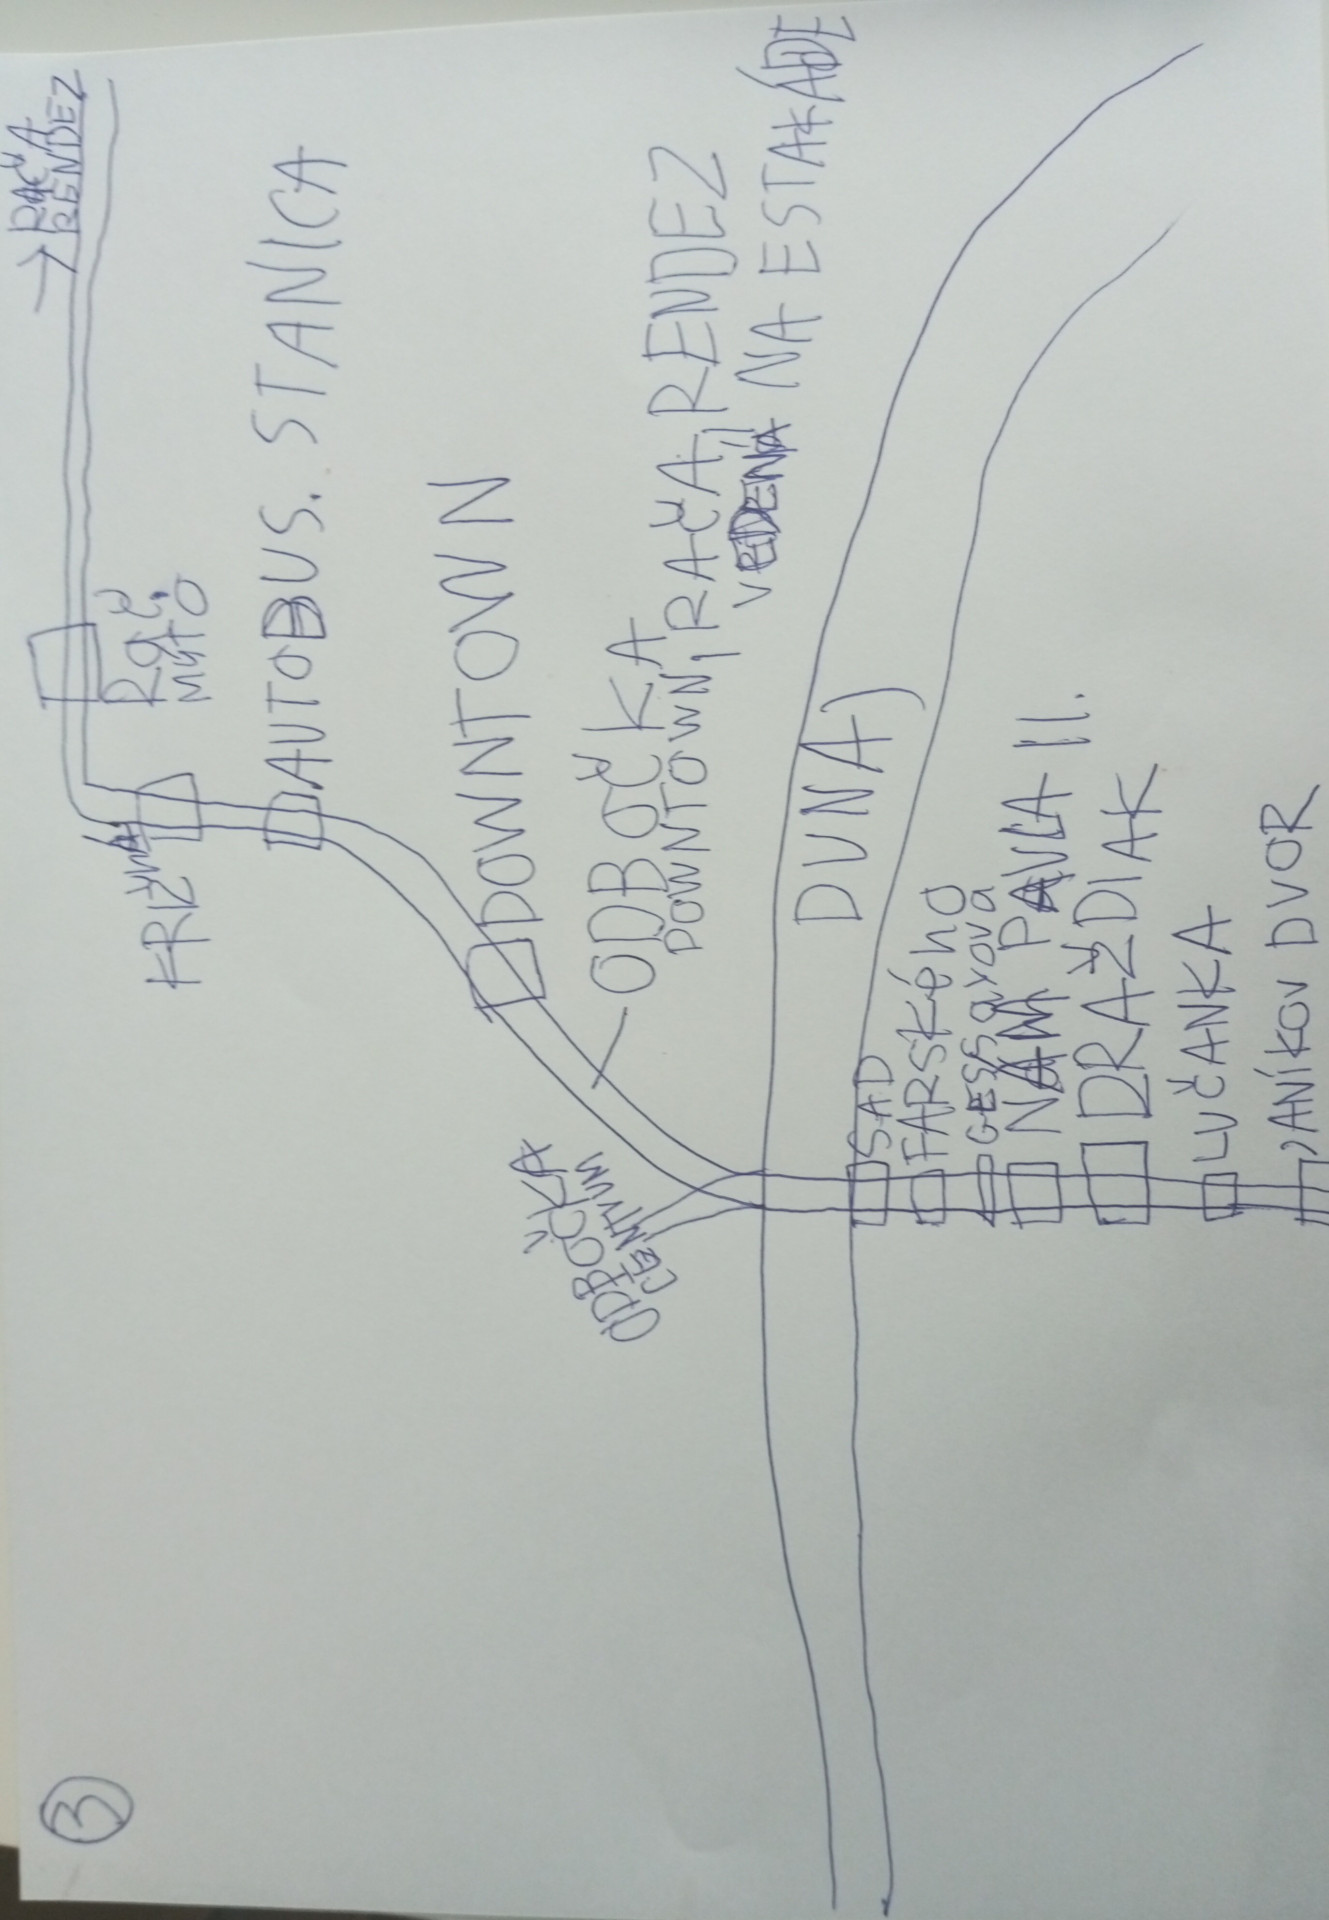 3
RAČA
RENDEZ
Rač.
Mýto
KRIŽNA
AUTOBUS. STANICA
DOWNTOWN
ODBOČKA
DOWNTOWN, RAČA, RENDEZ
VEDENÁ NA ESTAKÁDE
ODBOČKA
CENTRUM
DUNAJ
SAD
FARSKÉHO
GESSAYOVA
NÁM PAVLA II.
DRAŽDIAK
LUČANKA
JANÍKOV DVOR